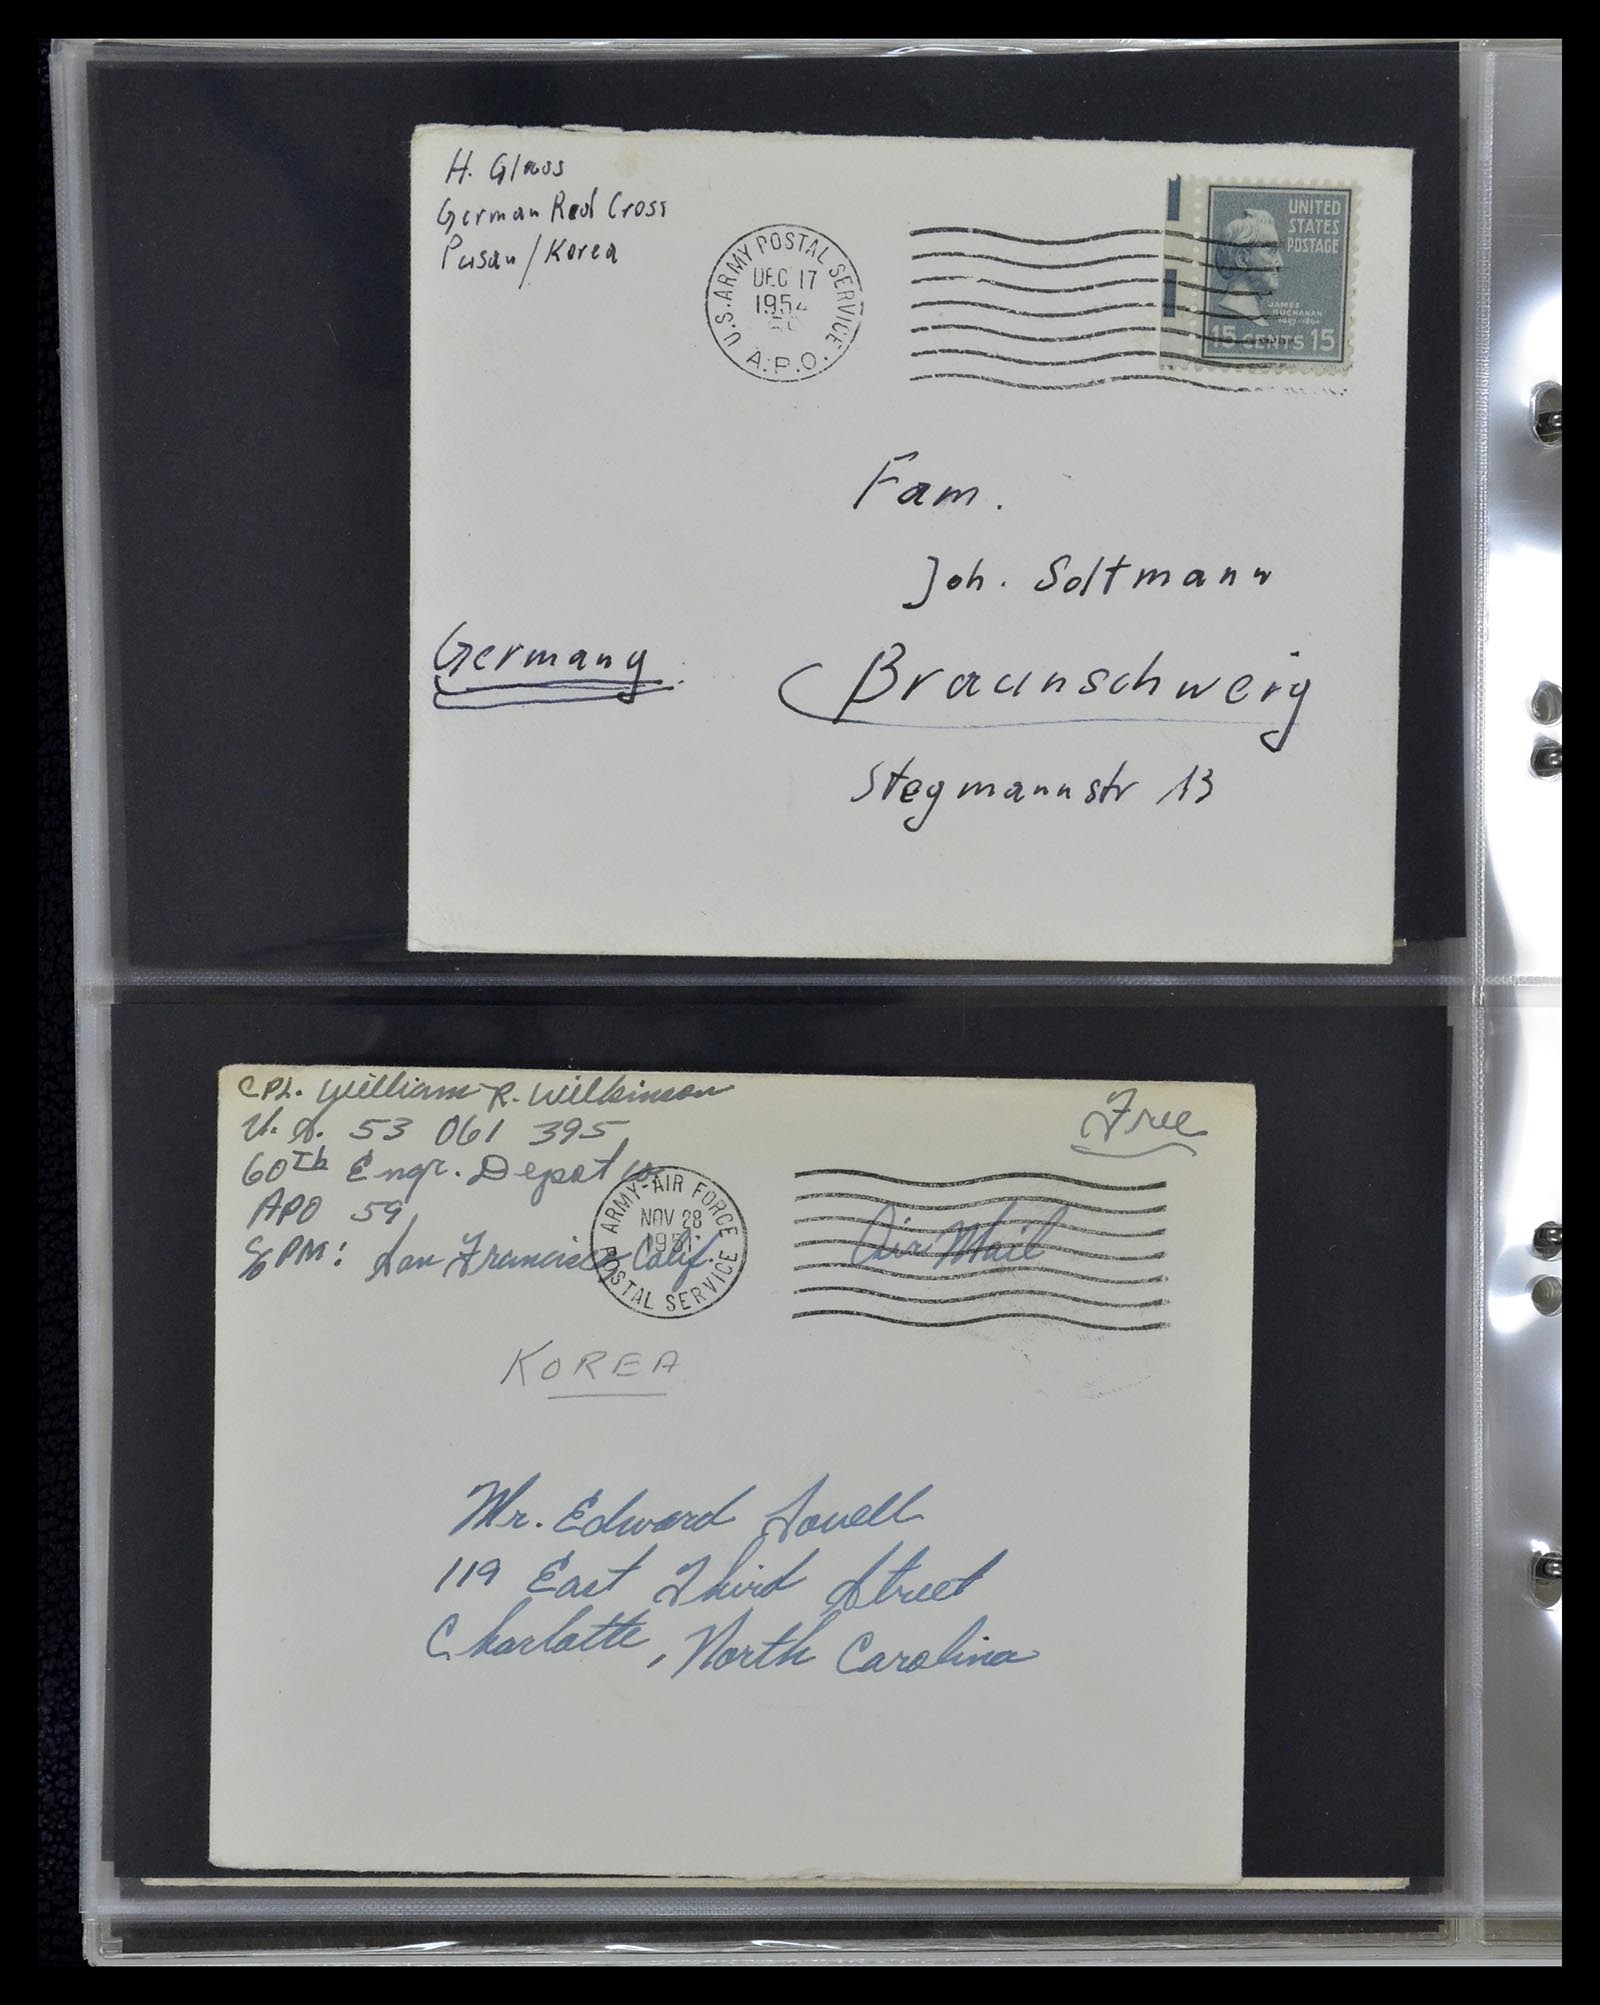 H. Glaos
German Red Cross
Pusan/Korea
U.S. ARMY POSTAL SERVICE
DEC 17
1954
A.P.O.
UNITED
STATES
POSTAGE
JAMES
BUCHANAN
15 CENTS 15
Fam.
Joh. Soltmann
Germany
Braunschweig
Stegmannstr 13
CPL. William R. Wilkinson
U. S. 53 061 395
60th Engr. Depot Co.
APO 59
c/o PM: San Francisco Calif.
Free
ARMY-AIR FORCE
NOV 28
1951
POSTAL SERVICE
Air Mail
KOREA
Mr. Edward
119 East Third Street
Charlotte, North Carolina